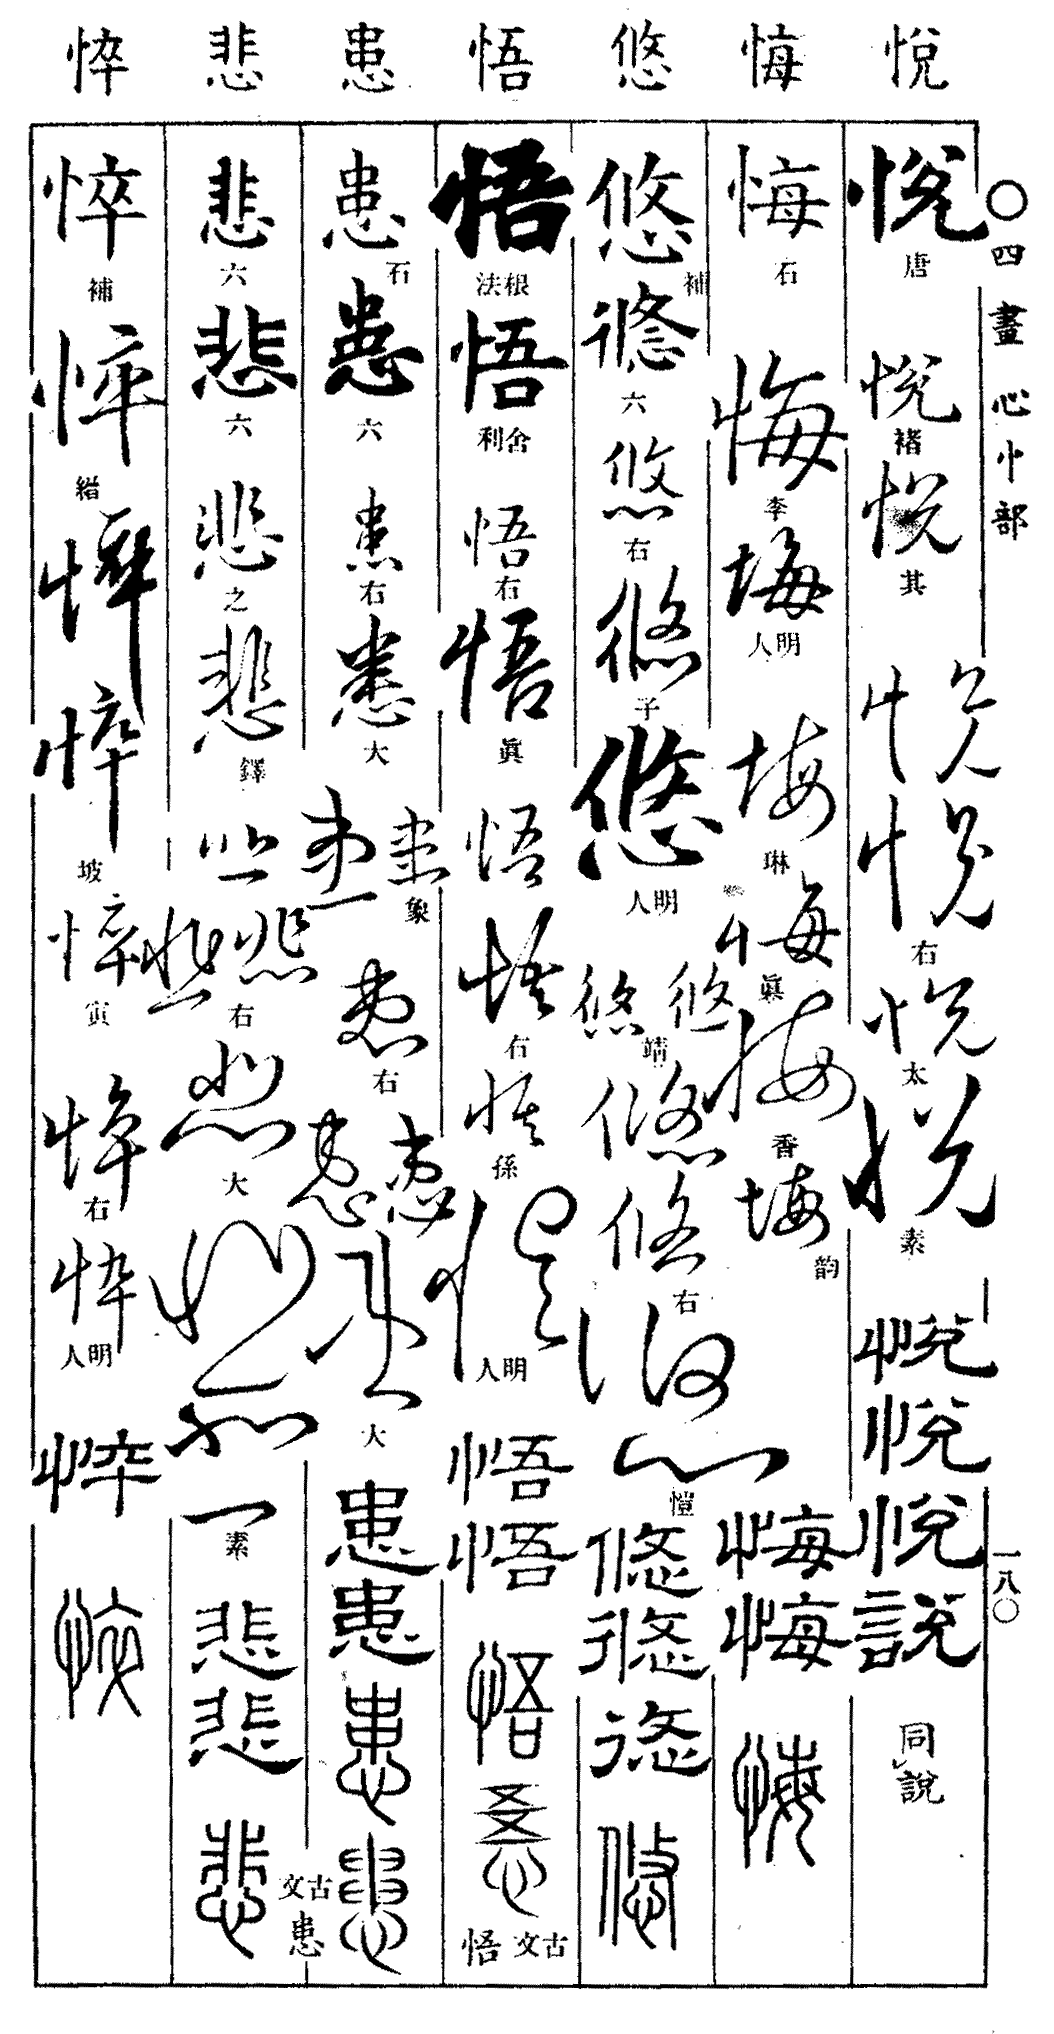 〇四畫 心忄部
一八〇
悅 悔 悠 悟 患 悲 悴
悅 唐
悅 褚
悅 其
悅
悅 右
悅 太
悅 素
悅
悅
悅
說
同說
悔 石
悔 李
悔 明人
悔 琳
悔 眞
悔 香
悔 韵
悔
悔
悔
悠 補
悠 六
悠 右
悠 子
悠 明人
悠 悠 靖
悠
悠 右
悠 愷
悠
悠
悠
悠
悟 根法
悟 舍利
悟 右
悟 眞
悟
悟 右
悟 孫
悟 明人
悟
悟
悟
古文悟
患 石
患 六
患 右
患 大
患 象
患
患 右
患 患
患 大
患
患
患
古文患
悲 六
悲 六
悲 之
悲 鐸
悲
悲 悲 右
悲 大
悲
悲 素
悲
悲
悲
悴 補
悴 緇
悴
悴 坡
悴 寅
悴 右
悴 明人
悴
悴